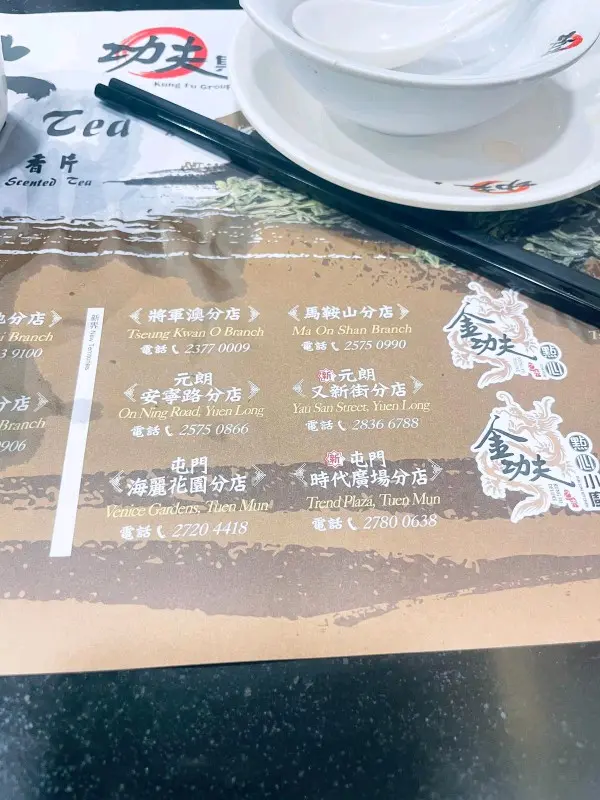 功夫集
Kung Fu Group
Tea
香片
Scented Tea
分店
Branch
9100
分店
Branch
0906
新界 New Territories
將軍澳分店
Tseung Kwan O Branch
電話 2377 0009
馬鞍山分店
Ma On Shan Branch
電話 2575 0990
元朗
安寧路分店
On Ning Road, Yuen Long
電話 2575 0866
新 元朗
又新街分店
Yau San Street, Yuen Long
電話 2836 6788
屯門
海麗花園分店
Venice Gardens, Tuen Mun
電話 2720 4418
新 屯門
時代廣場分店
Trend Plaza, Tuen Mun
電話 2780 0638
金功夫
點心
金功夫
點心小廚